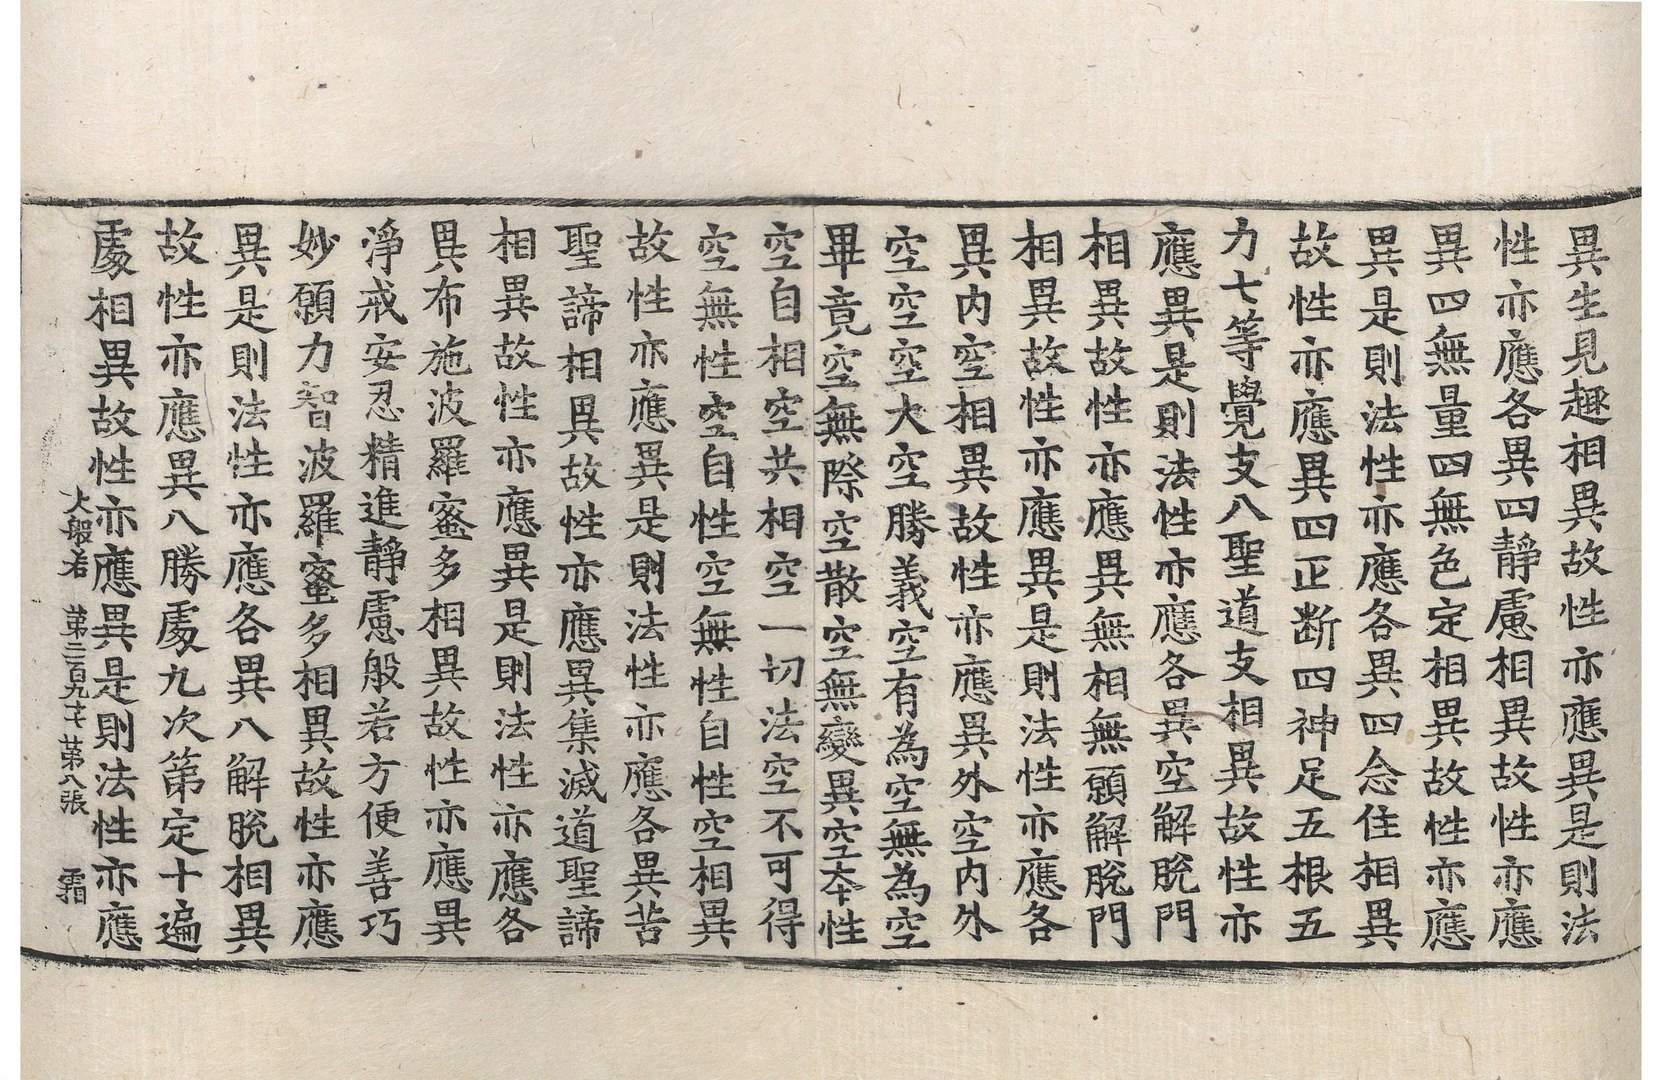 異生見趣相異故性亦應異是則法
性亦應各異四靜慮相異故性亦應
異四無量四無色定相異故性亦應
異是則法性亦應各異四念住相異
故性亦應異四正断四神足五根五
力七等覺支八聖道支相異故性亦
應異是則法性亦應各異空解脫門
相異故性亦應異無相無願解脫門
相異故性亦應異是則法性亦應各
異内空相異故性亦應異外空内外
空空空大空勝義空有為空無為空
畢竟空無際空散空無變異空夲性
空自相空共相空一切法空不可得
空無性空自性空無性自性空相異
故性亦應異是則法性亦應各異苦
聖諦相異故性亦應異集滅道聖諦
相異故性亦應異是則法性亦應各
異布施波羅蜜多相異故性亦應異
淨戒安忍精進靜慮般若方便善巧
妙願力智波羅蜜多相異故性亦應
異是則法性亦應各異八解脫相異
故性亦應異八勝處九次第定十遍
處相異故性亦應異是則法性亦應
大般若 第三百九十七 第八張 霜